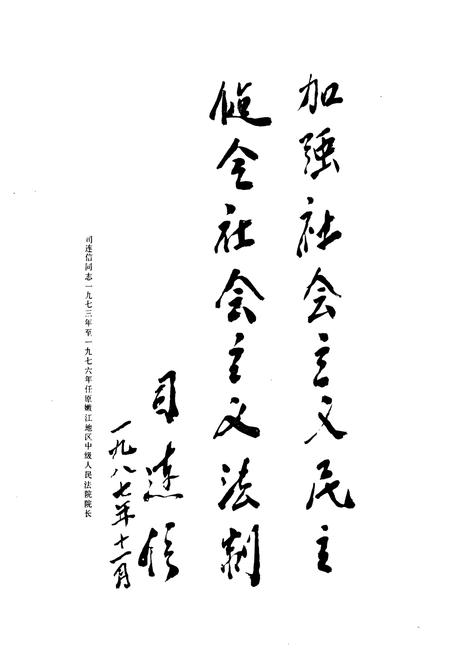 加强社会主义民主
健全社会主义法制
司连信
一九八七年十一月
司连信同志一九七三年至一九七六年任原嫩江地区中级人民法院院长